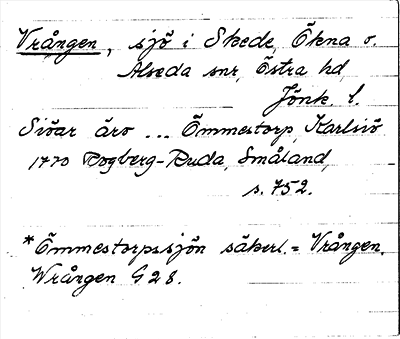 Vrången, sjö i Skede, Ökna o.
Alseda snr, Östra hd
Jönk. l.
Siöar äro ... Ömmestorp, Karlsiö
1770 Rogberg-Ruda, Småland,
s. 752.
*Ömmestorpssjön säkerl. = Vrången.
Wrången G 28.